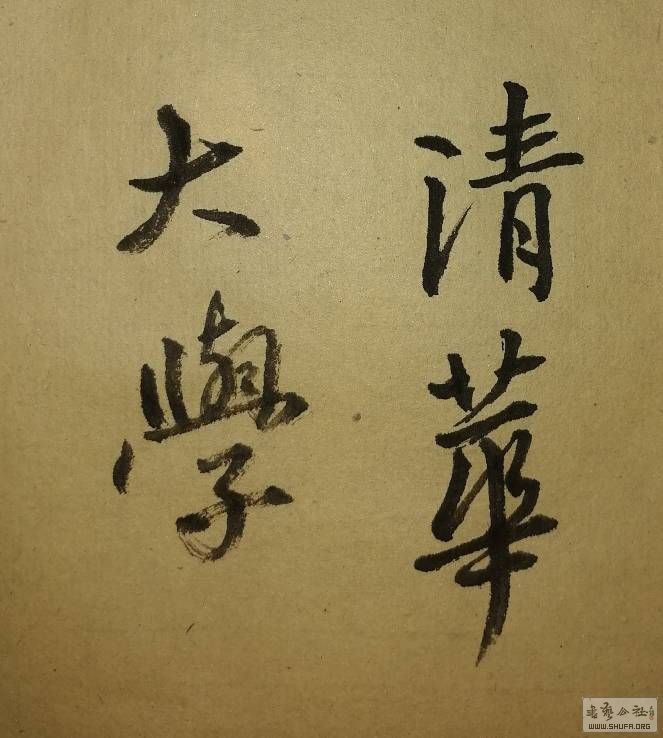 清華
大學
书艺公社
WWW.SHUFA.ORG